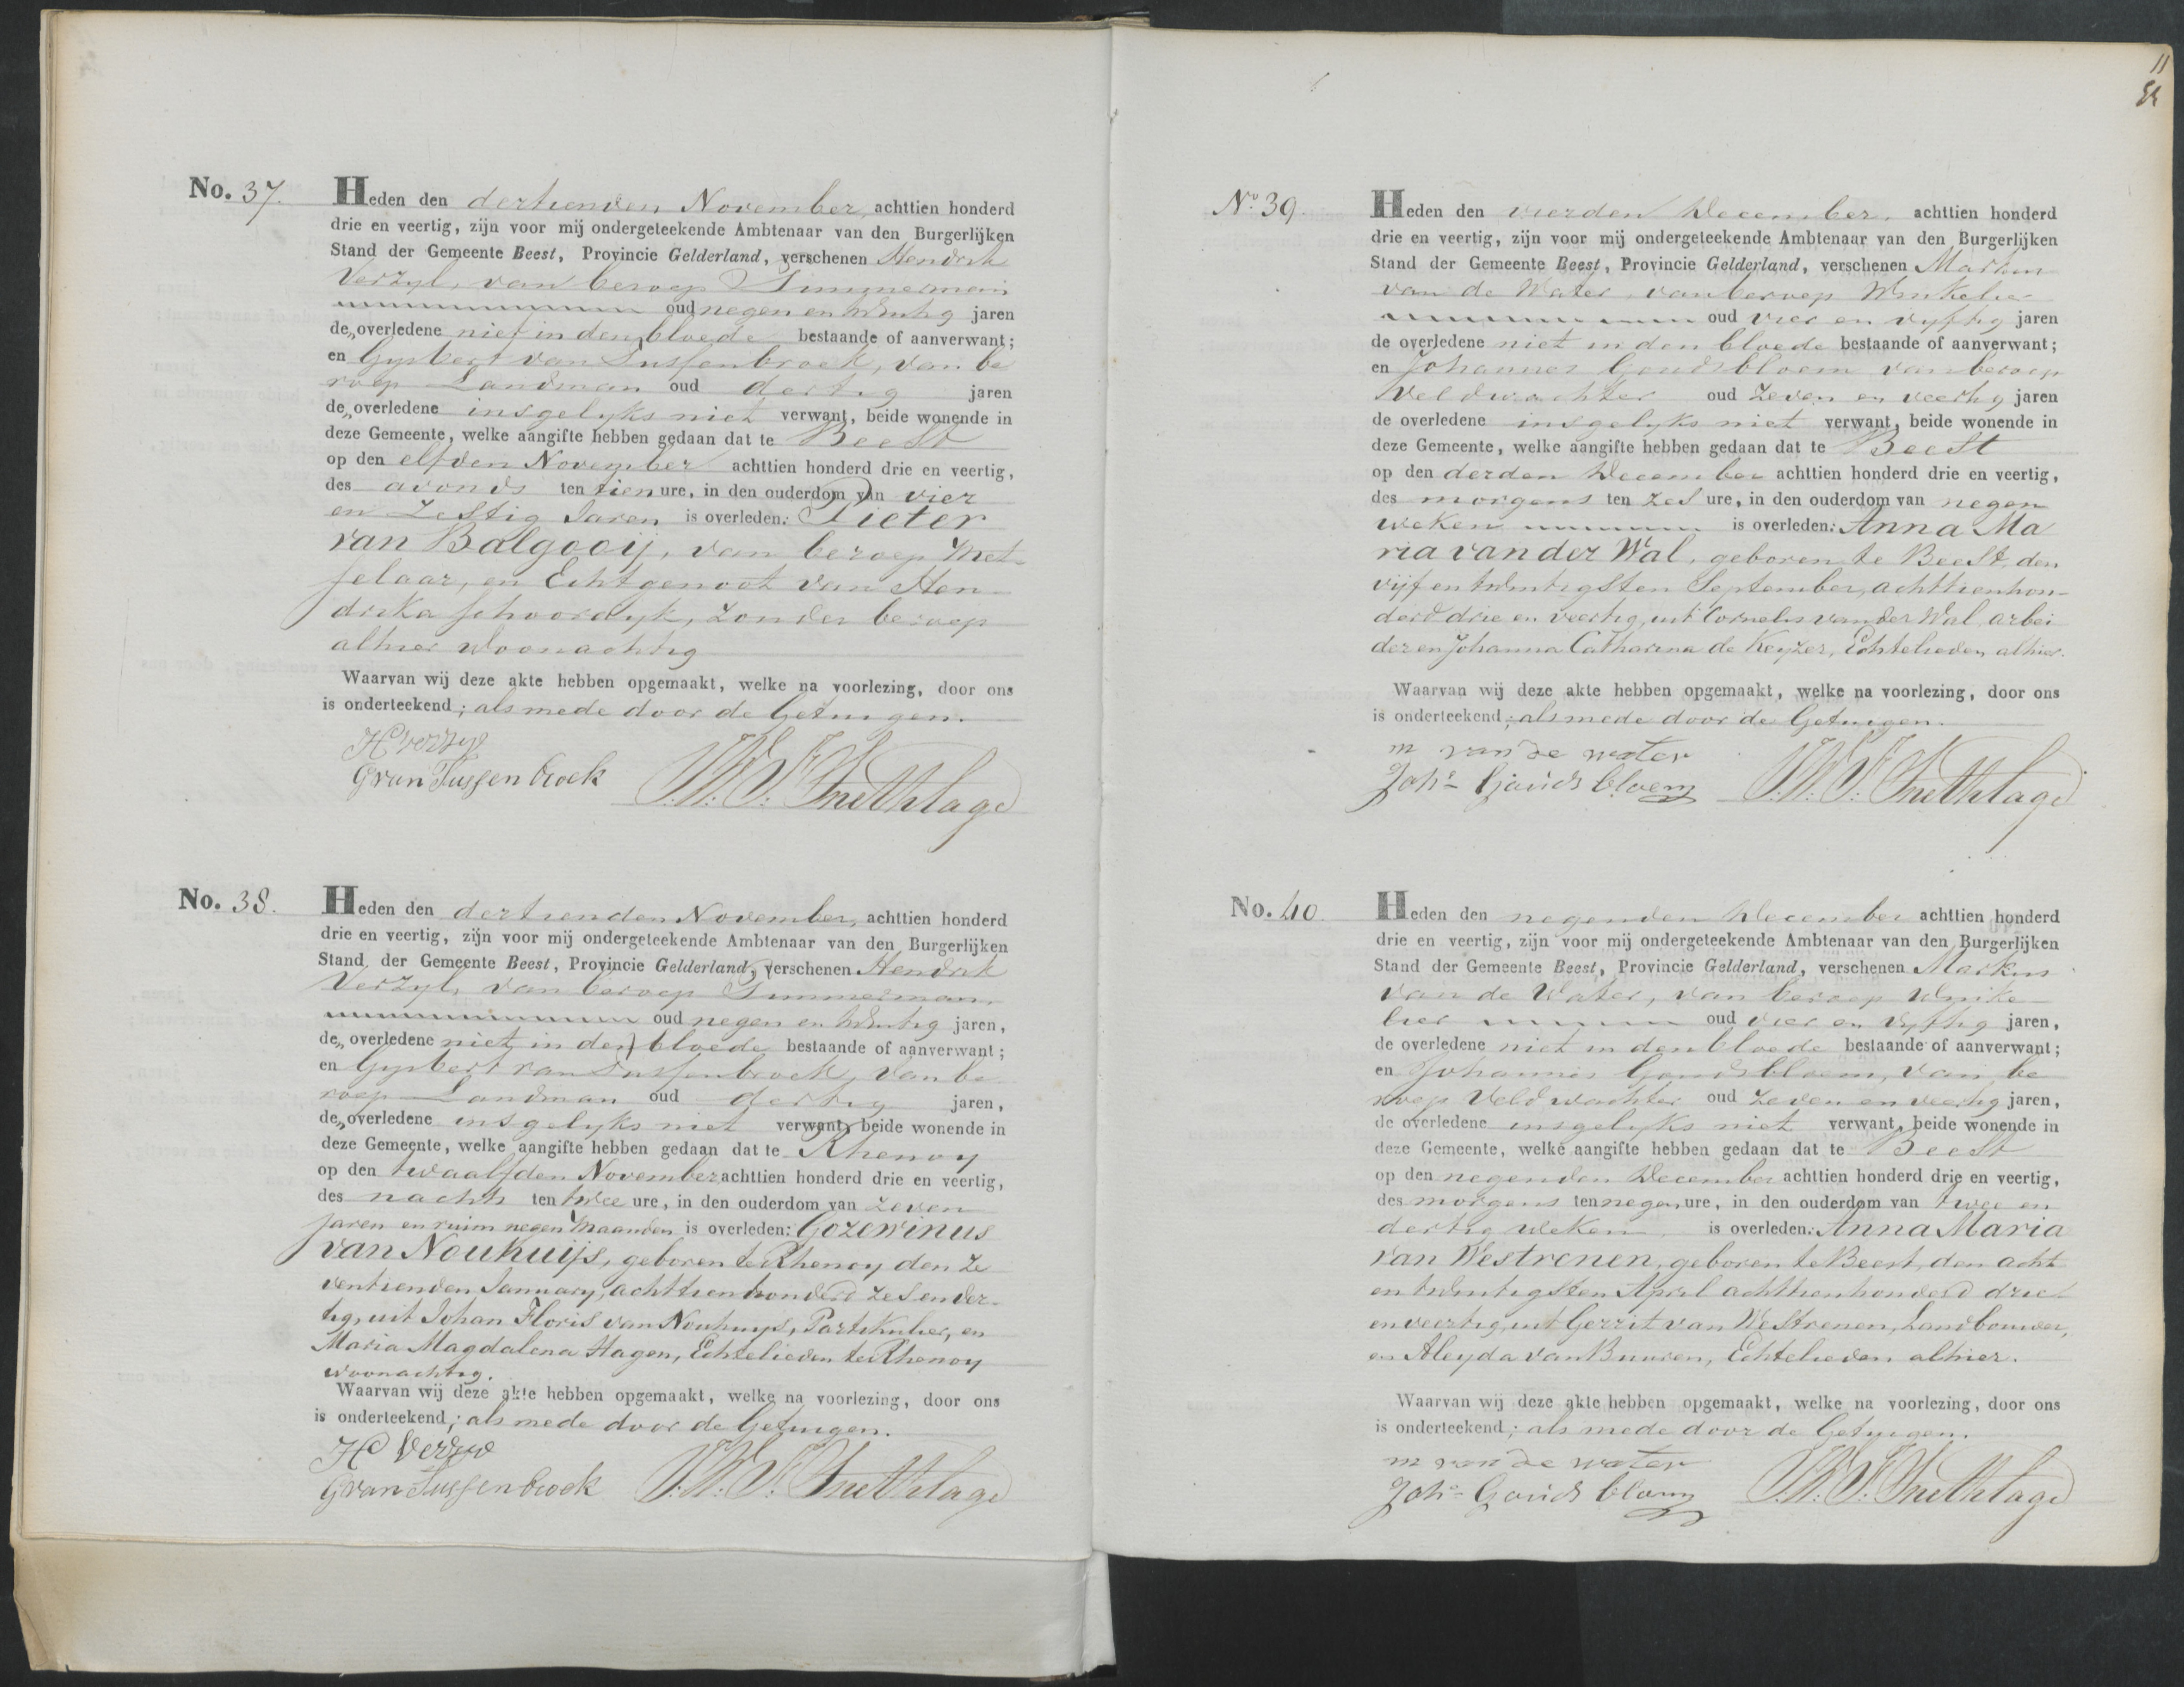 No. 37.
Heden den dertienden November, achttien honderd
drie en veertig, zijn voor mij ondergeteekende Ambtenaar van den Burgerlijken
Stand der Gemeente Beest, Provincie Gelderland, verschenen Hendrik
Verzyl, van beroep Timmerman
oud negen en twintig jaren
de overledene niet in den bloede bestaande of aanverwant;
en Gysbert van Tussenbroek, van be
roep Landman oud dertig jaren
de overledene insgelyks niet verwant, beide wonende in
deze Gemeente, welke aangifte hebben gedaan dat te Beest
op den elfden November achttien honderd drie en veertig,
des avonds ten tien ure, in den ouderdom van vier
en Zestig Jaren is overleden: Pieter
van Balgooij, van beroep Met-
selaar, en Echtgenoot van Hen-
drika Schoordyk, zonder beroep
alhier Woonachtig
Waarvan wij deze akte hebben opgemaakt, welke na voorlezing, door ons
is onderteekend; als mede door de Getuigen.
H Verzyl
G van Tussenbroek J.W.F. Snethlage
No. 38.
Heden den dertienden November, achttien honderd
drie en veertig, zijn voor mij ondergeteekende Ambtenaar van den Burgerlijken
Stand der Gemeente Beest, Provincie Gelderland, verschenen Hendrik
Verzyl, van beroep Timmerman,
oud negen en twintig jaren,
de overledene niet in den bloede bestaande of aanverwant;
en Gysbert van Tussenbroek, van be
roep Landman oud dertig jaren,
de overledene insgelyks niet verwant, beide wonende in
deze Gemeente, welke aangifte hebben gedaan dat te Rhenoy
op den twaalfden November achttien honderd drie en veertig,
des nachts ten twee ure, in den ouderdom van zeven
Jaren en ruim negen Maanden is overleden: Gozewinus
van Nouhuijs, geboren te Rhenoy den Ze
ventienden January, achttienhonderd zes en der-
tig, uit Johan Floris van Nouhuys, Partikulier, en
Maria Magdalena Hagen, Echtelieden te Rhenoy
woonachtig.
Waarvan wij deze akte hebben opgemaakt, welke na voorlezing, door ons
is onderteekend; als mede door de Getuigen.
H Verzyl
G van Tussenbroek J.W.F. Snethlage
11
No. 39.
Heden den vierden December, achttien honderd
drie en veertig, zijn voor mij ondergeteekende Ambtenaar van den Burgerlijken
Stand der Gemeente Beest, Provincie Gelderland, verschenen Markus
van de Water, van beroep Winkelier
oud vier en vyftig jaren
de overledene niet in den bloede bestaande of aanverwant;
en Johannes Goudsbloem van beroep
Veldwachter oud zeven en veertig jaren
de overledene insgelyks niet verwant, beide wonende in
deze Gemeente, welke aangifte hebben gedaan dat te Beest
op den derden December achttien honderd drie en veertig,
des morgens ten zes ure, in den ouderdom van negen
weken is overleden: Anna Ma
ria van der Wal, geboren te Beest, den
vijf en twintigsten September, achttienhon-
derd drie en veertig, uit Cornelis van der Wal, arbei
der en Johanna Catharina de Keyzer, Echtelieden, alhier.
Waarvan wij deze akte hebben opgemaakt, welke na voorlezing, door ons
is onderteekend; als mede door de Getuigen.
m van de water
Johs Goudsbloem J.W.F. Snethlage
No. 40.
Heden den negenden December achttien honderd
drie en veertig, zijn voor mij ondergeteekende Ambtenaar van den Burgerlijken
Stand der Gemeente Beest, Provincie Gelderland, verschenen Markus
van de Water, van beroep Winke-
lier oud vier en vyftig jaren,
de overledene niet in den bloede bestaande of aanverwant;
en Johannes Goudsbloem, van be
roep Veldwachter oud zeven en veertig jaren,
de overledene insgelyks niet verwant, beide wonende in
deze Gemeente, welke aangifte hebben gedaan dat te Beest
op den negenden December achttien honderd drie en veertig,
des morgens ten negen ure, in den ouderdom van twee en
dertig weken is overleden: Anna Maria
van Westrenen, geboren te Beest, den acht
en twintigsten April achttienhonderd drie
en veertig, uit Gerrit van Westrenen, Landbouwer,
en Aleyda van Buuren, Echtelieden alhier.
Waarvan wij deze akte hebben opgemaakt, welke na voorlezing, door ons
is onderteekend; als mede door de Getuigen.
m van de water
Johs Goudsbloem J.W.F. Snethlage